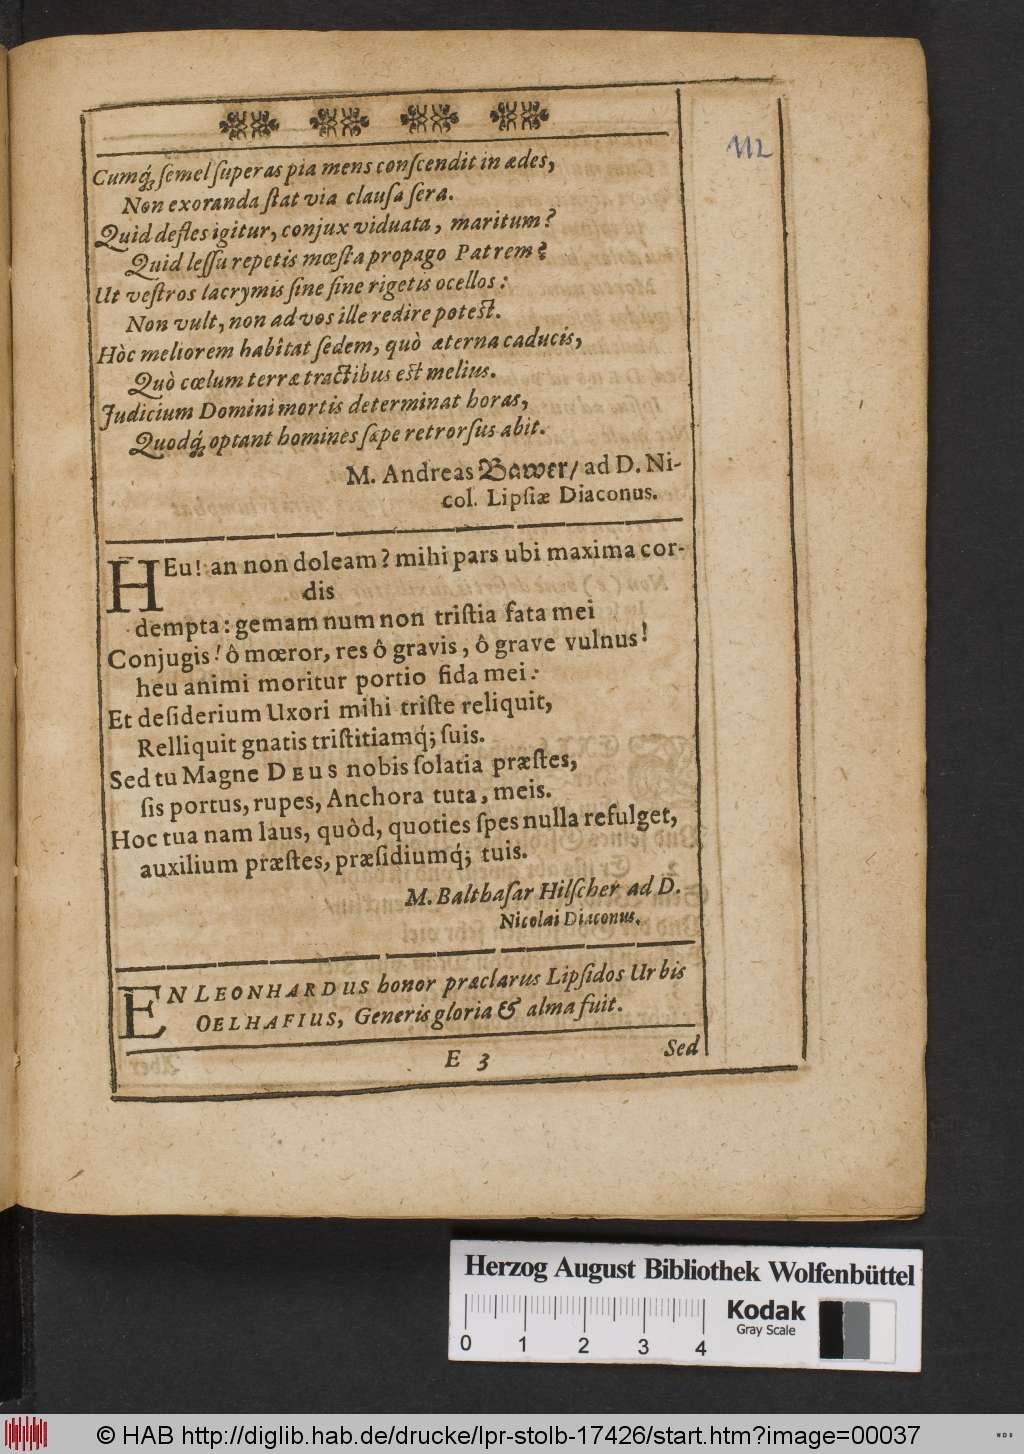 112
Cumq́; ſemel ſuperas pia mens conſcendit in ædes,
Non exoranda ſtat via clauſa ſera.
Quid defles igitur, conjux viduata, maritum?
Quid leſſu repetis mœſta propago Patrem?
Ut veſtros lacrymis ſine fine rigetis ocellos:
Non vult, non ad vos ille redire poteſt.
Hòc meliorem habitat ſedem, quò æterna caducis,
Quò cœlum terræ tractibus eſt melius.
Judicium Domini mortis determinat horas,
Quodq́; optant homines ſæpe retrorſus abit.
M. Andreas Bawer/ ad D. Ni-
col. Lipſiæ Diaconus.
HEu! an non doleam? mihi pars ubi maxima cor-
dis
dempta: gemam num non triſtia fata mei
Conjugis! ô mœror, res ô gravis, ô grave vulnus!
heu animi moritur portio fida mei:
Et deſiderium Uxori mihi triſte reliquit,
Relliquit gnatis triſtitiamq́; ſuis.
Sed tu Magne DEUS nobis ſolatia præſtes,
ſis portus, rupes, Anchora tuta, meis.
Hoc tua nam laus, quòd, quoties ſpes nulla refulget,
auxilium præſtes, præſidiumq́; tuis.
M. Balthaſar Hilſcher ad D.
Nicolai Diaconus.
EN LEONHARDUS honor præclarus Lipſidos Urbis
OELHAFIUS, Generis gloria & alma fuit.
E 3
Sed
Herzog August Bibliothek Wolfenbüttel
Kodak
Gray Scale
0 1 2 3 4
© HAB http://diglib.hab.de/drucke/lpr-stolb-17426/start.htm?image=00037